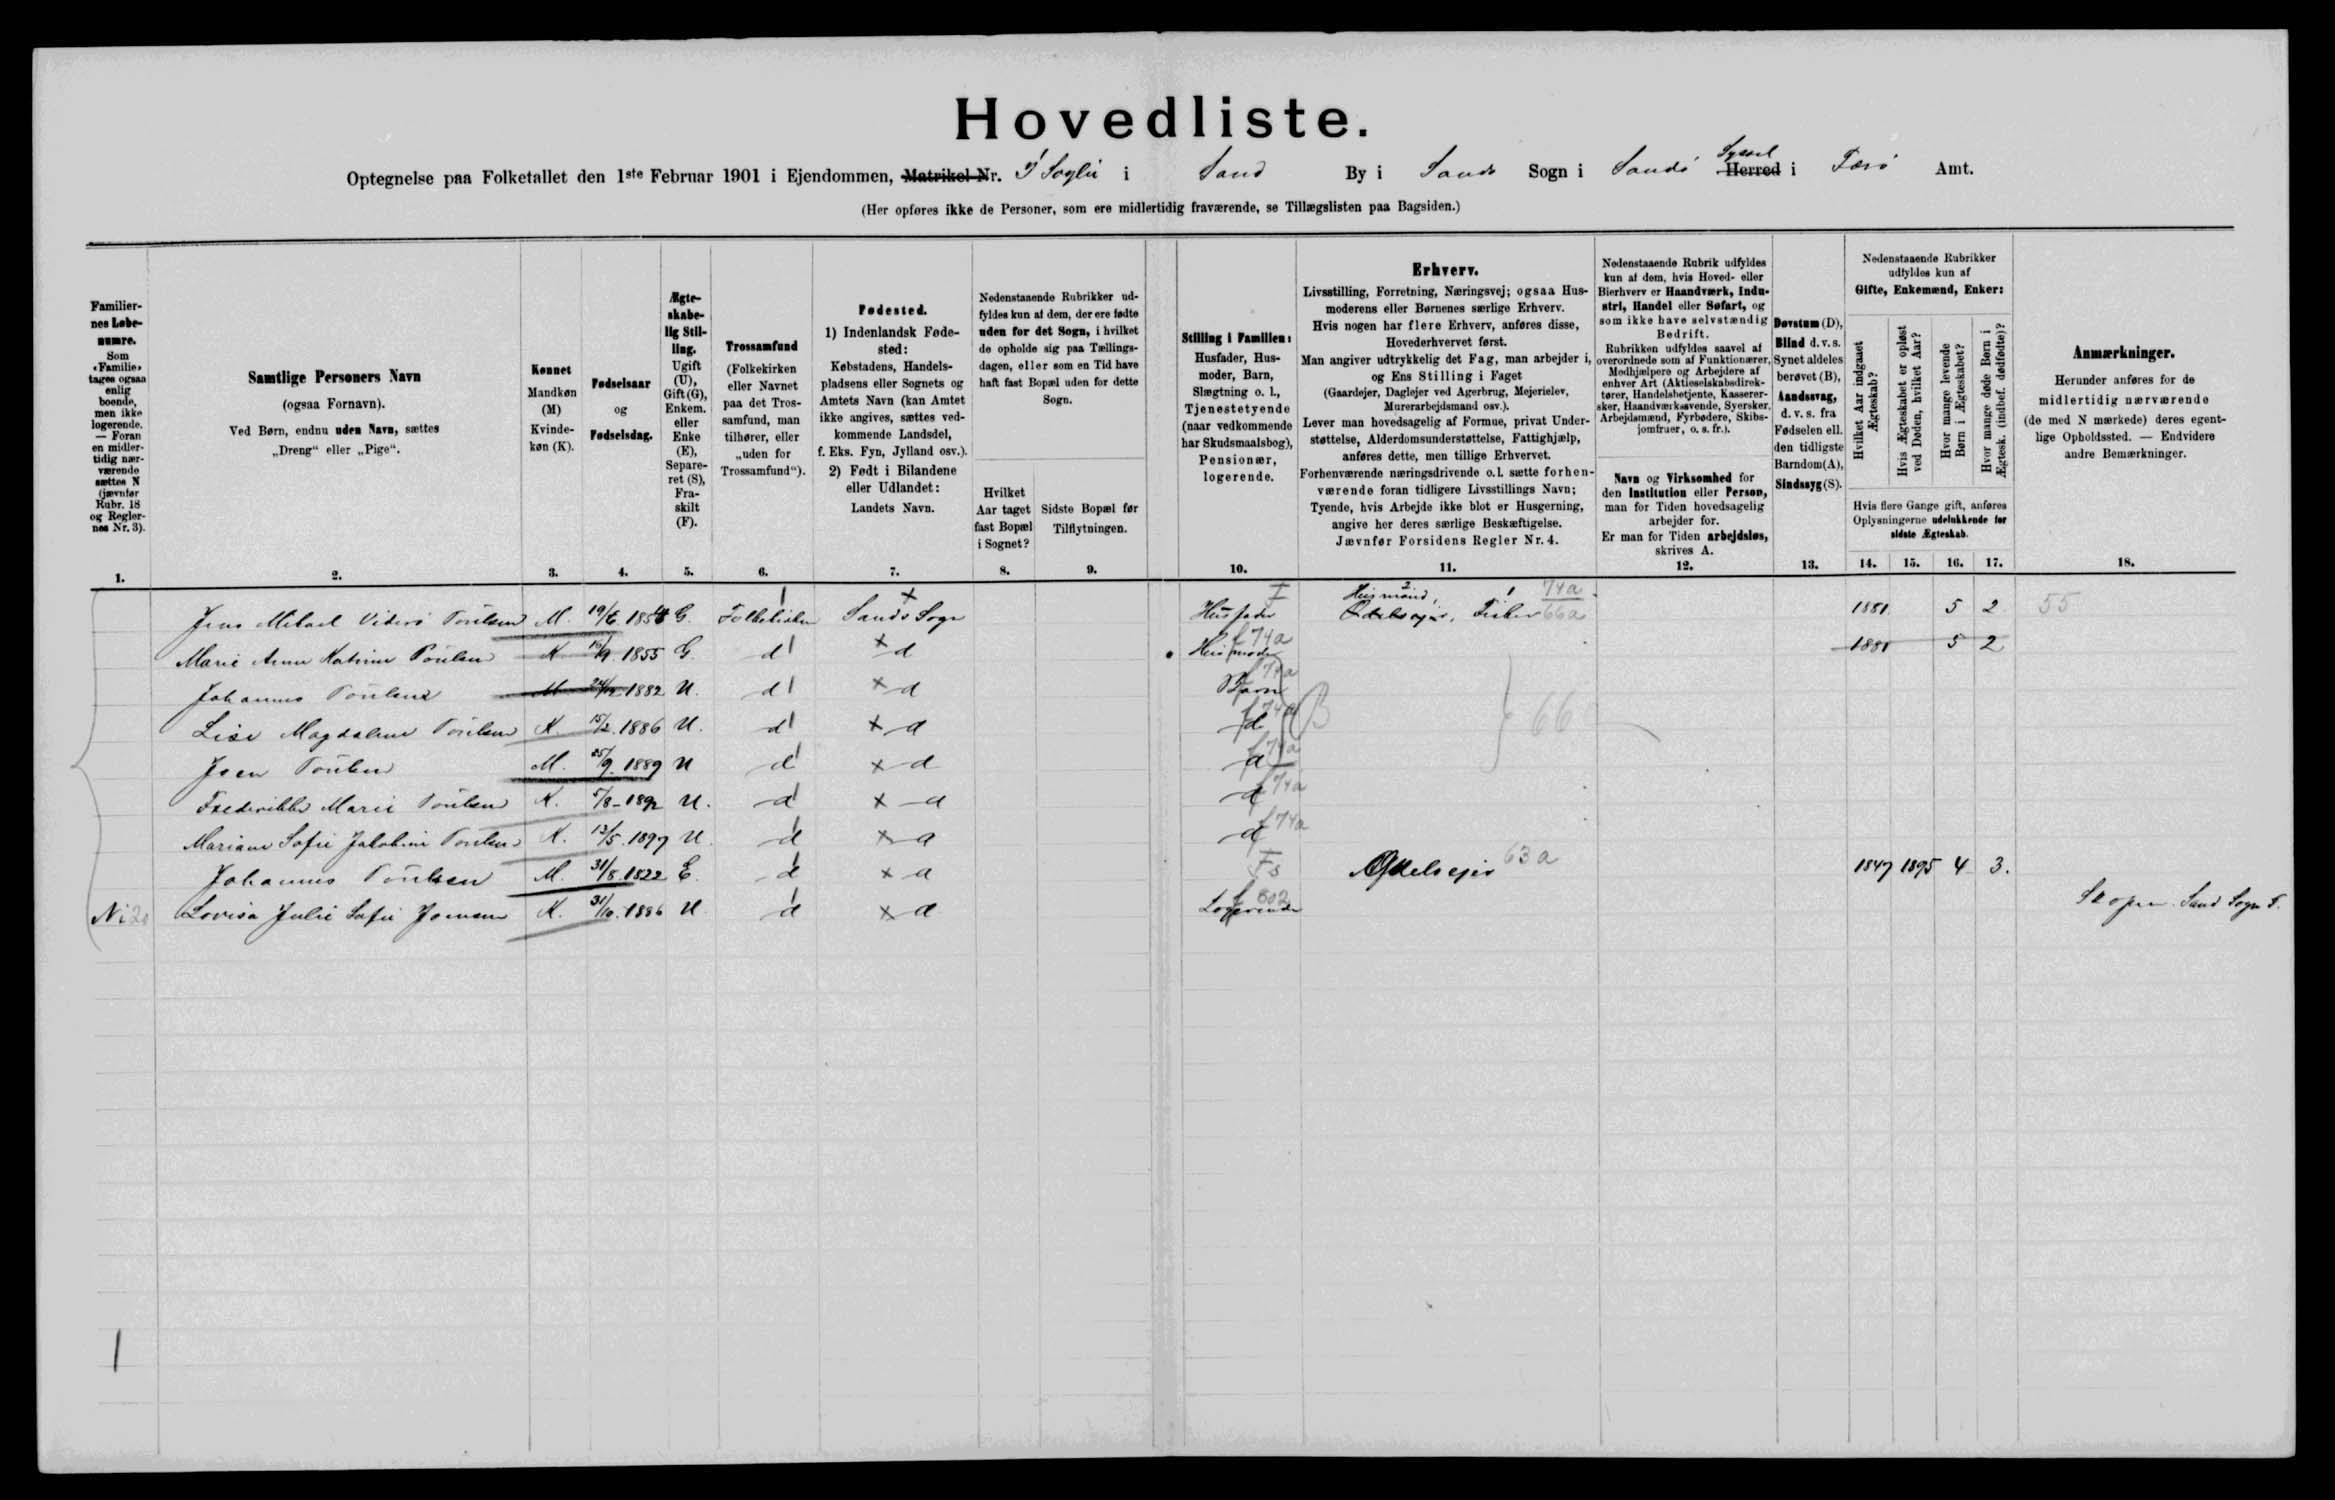 Hovedliste.
Optegnelse paa Folketallet den 1ste Februar 1901 i Ejendommen, Matrikel Nr. I Soglii i Sand By i Sands Sogn i Sandø Syssel Herred i Færø Amt.
(Her opføres ikke de Personer, som ere midlertidig fraværende, se Tillægslisten paa Bagsiden.)
Familier-
nes Løbe-
numre.
Som
«Familie»
tages ogsaa
enlig
boende,
men ikke
logerende.
— Foran
en midler-
tidig nær-
værende
sættes N
(jævnfør
Rubr. 18
og Regler-
nes Nr. 3).
1.
Samtlige Personers Navn
(ogsaa Fornavn).
Ved Børn, endnu uden Navn, sættes
„Dreng“ eller „Pige“.
2.
Kønnet
Mandkøn
(M)
Kvinde-
køn (K).
3.
Fødselsaar
og
Fødselsdag.
4.
Ægte-
skabe-
lig Stil-
ling.
Ugift
(U),
Gift (G),
Enkem.
eller
Enke
(E),
Separe-
ret (S),
Fra-
skilt
(F).
5.
Trossamfund
(Folkekirken
eller Navnet
paa det Tros-
samfund, man
tilhører, eller
„uden for
Trossamfund“).
6.
Fødested.
1) IndenlandskFøde-
sted:
Købstadens, Handels-
pladsens eller Sognets og
Amtets Navn (kan Amtet
ikke angives, sættes ved-
kommende Landsdel,
f. Eks. Fyn, Jylland osv.).
2) Født i Bilandene
eller Udlandet:
Landets Navn.
7.
Nedenstaaende Rubrikker ud-
fyldes kun af dem, der ere fødte
uden for det Sogn, i hvilket
de opholde sig paa Tællings-
dagen, eller som en Tid have
haft fast Bopæl uden for dette
Sogn.
Hvilket
Aar taget
fast Bopæl
i Sognet?
8.
Sidste Bopæl før
Tilflytningen.
9.
Stilling i Familien:
Husfader, Hus-
moder, Barn,
Slægtning o. l.,
Tjenestetyende
(naar vedkommende
har Skudsmaalsbog),
Pensionær,
logerende.
10.
Erhverv.
Livsstilling, Forretning, Næringsvej; ogsaa Hus-
moderens eller Børnenes særlige Erhverv.
Hvis nogen har flere Erhverv, anføres disse,
Hovederhvervet først.
Man angiver udtrykkelig det Fag, man arbejder i,
og Ens Stilling i Faget
(Gaardejer, Daglejer ved Agerbrug, Mejerielev,
Murerarbejdsmand osv.).
Lever man hovedsagelig af Formue, privat Under-
støttelse, Alderdomsunderstøttelse, Fattighjælp,
anføres dette, men tillige Erhvervet.
Forhenværende næringsdrivende o. l. sætte forhen-
værende foran tidligere Livsstillings Navn;
Tyende, hvis Arbejde ikke blot er Husgerning,
angive her deres særlige Beskæftigelse.
Jævnfør Forsidens Regler Nr. 4.
11.
Nedenstaaende Rubrik udfyldes
kun af dem, hvis Hoved- eller
Bierhverv er Haandværk, Indu-
stri, Handel eller Søfart, og
som ikke have selvstændig
Bedrift.
Rubrikken udfyldes saavel af
overordnede som af Funktionærer,
Medhjælpere og Arbejdere af
enhver Art (Aktieselskabsdirek-
tører, Handelsbetjente, Kasserer-
sker, Haandværkssvende, Syersker,
Arbejdsmænd, Fyrbødere, Skibs-
jomfruer, o. s. fr.).
Navn og Virksomhed for
den Institution eller Person,
man for Tiden hovedsagelig
arbejder for.
Er man for Tiden arbejdsløs,
skrives A.
12.
Døvstum (D),
Blind d. v. s.
Synet aldeles
berøvet (B),
Aandssvag,
d. v. s. fra
Fødselen ell.
den tidligste
Barndom (A),
Sindssyg (S).
13.
Nedenstaaende Rubrikker
udfyldes kun af
Gifte, Enkemænd, Enker:
Hvilket Aar indgaaet
Ægteskab?
Hvis Ægteskabet er opløst
ved Døden, hvilket Aar?
Hvor mange levende
Børn i Ægteskabet?
Hvor mange døde Børn i
Ægtesk. (indbef. dødfødte)?
Hvis flere Gange gift, anføres
Oplysningerne udelukkende for
sidste Ægteskab.
14. 15. 16. 17.
Anmærkninger.
Herunder anføres for de
midlertidig nærværende
(de med N mærkede) deres egent-
lige Opholdssted. — Endvidere
andre Bemærkninger.
18.
Jens Mikael Viderø Poulsen M. 19/6. 1854 G. Folkekirken Sands Sogn Husfader Husmand, Odelsejer, Fisker 74a 66a 1881 5 2 55
Marie Anna Katrine Poulsen K 1855 G. d d Husmoder f 74a 1881 5 2
Johannes Poulsen M 1882 U. d d Barn f 74a
Lise Magdalene Poulsen K. 15/2. 1886 U. d d d f 74a B 66
Joen Poulsen M. 25/9. 1889 U d d d f 74a
Frederikke Marie Poulsen K. 5/8 - 1892 U. d d d f 74a
Mariane Sofie Jakobine Poulsen K. 13/5. 1897 U. d d d f 74a
Johannes Poulsen M. 31/8. 1822 E. d d Fs Odelsejer 63a 1847 1895 4 3.
N Lovisa Julie Sofie Joensen K. 31/10. 1886 U d d Logerende Skopen. Sand Sogn F.